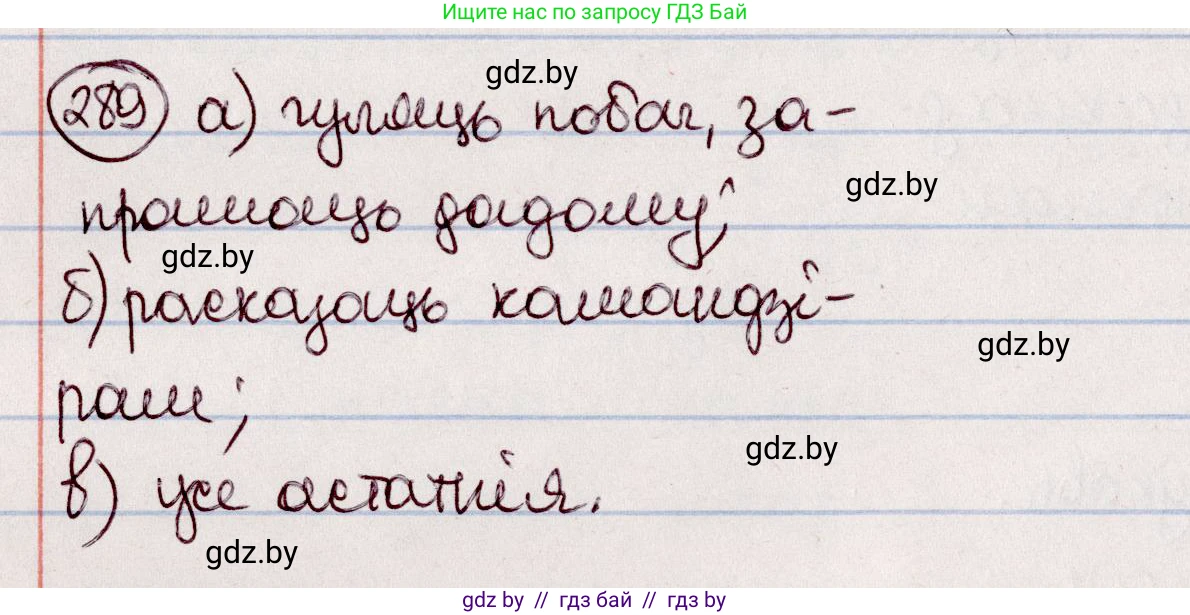 Ищите нас по запросу ГДЗ Бай
gdz.by
289 а) гуляць побач, за-
прашаць дадому;
gdz.by
gdz.by
б) расказаць камандзі-
gdz.by
рам;
gdz.by
в) усе астатнія.
gdz.by
gdz by // гдз бай // гдз by